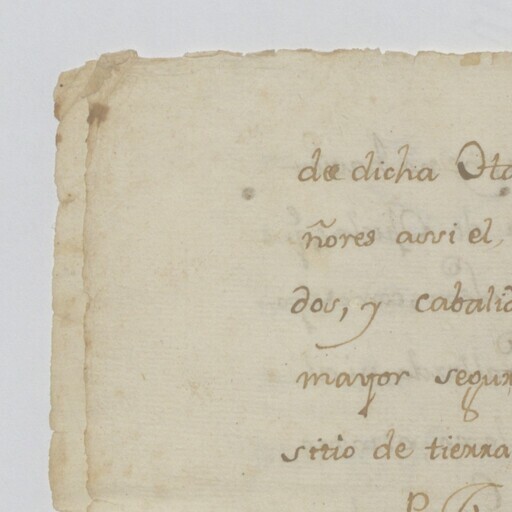 de dicha Ota
ñores assi el,
dos, y cabalid
mayor segun
sitio de tierra